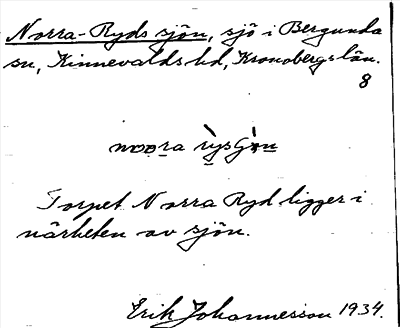 Norra-Ryds sjön, sjö i Bergunda
sn, Kinnevalds hd, Kronobergs län.
8
Torpet Norra Ryd ligger i
närheten av sjön.
Erik Johannesson 1934.